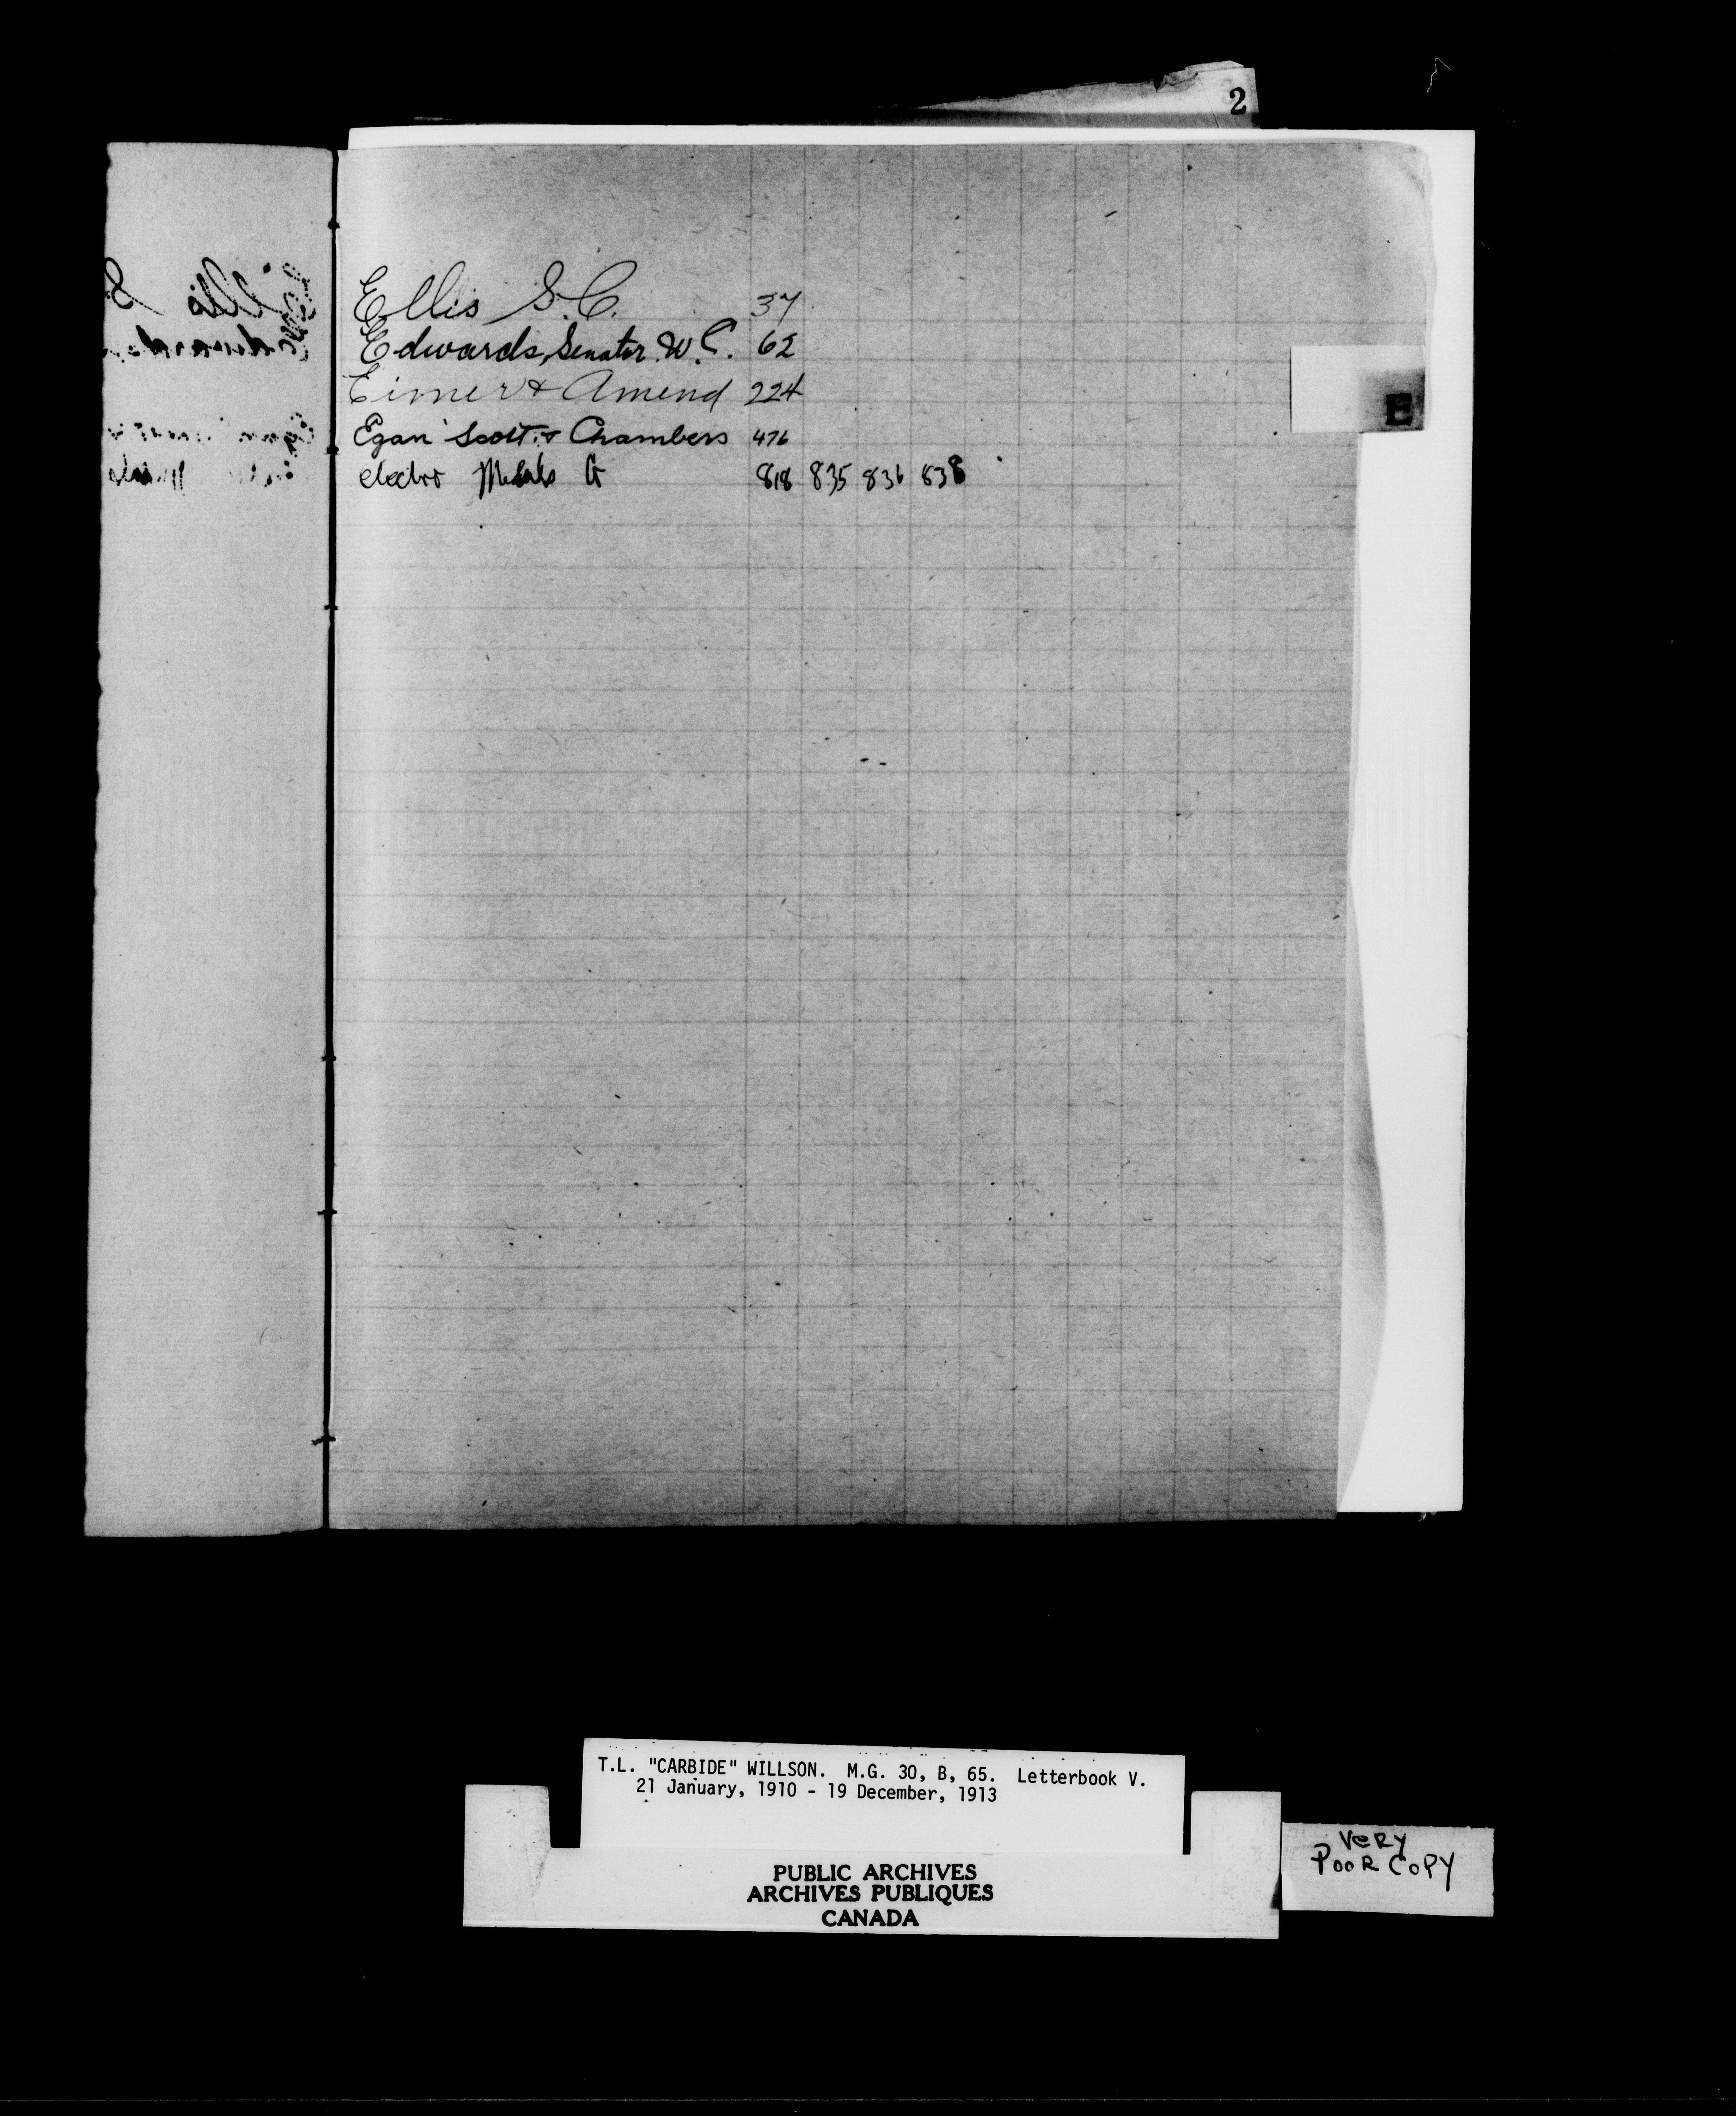 2
Ellis S.C. 37
Edwards, Senator W.C. 62
Eimer & Amend 224
E
Egan Scott & Chambers 476
Electro Metals Co 818 835 836 838
T.L. "CARBIDE" WILLSON. M.G. 30, B, 65. Letterbook V.
21 January, 1910 - 19 December, 1913
VERY
POOR COPY
PUBLIC ARCHIVES
ARCHIVES PUBLIQUES
CANADA